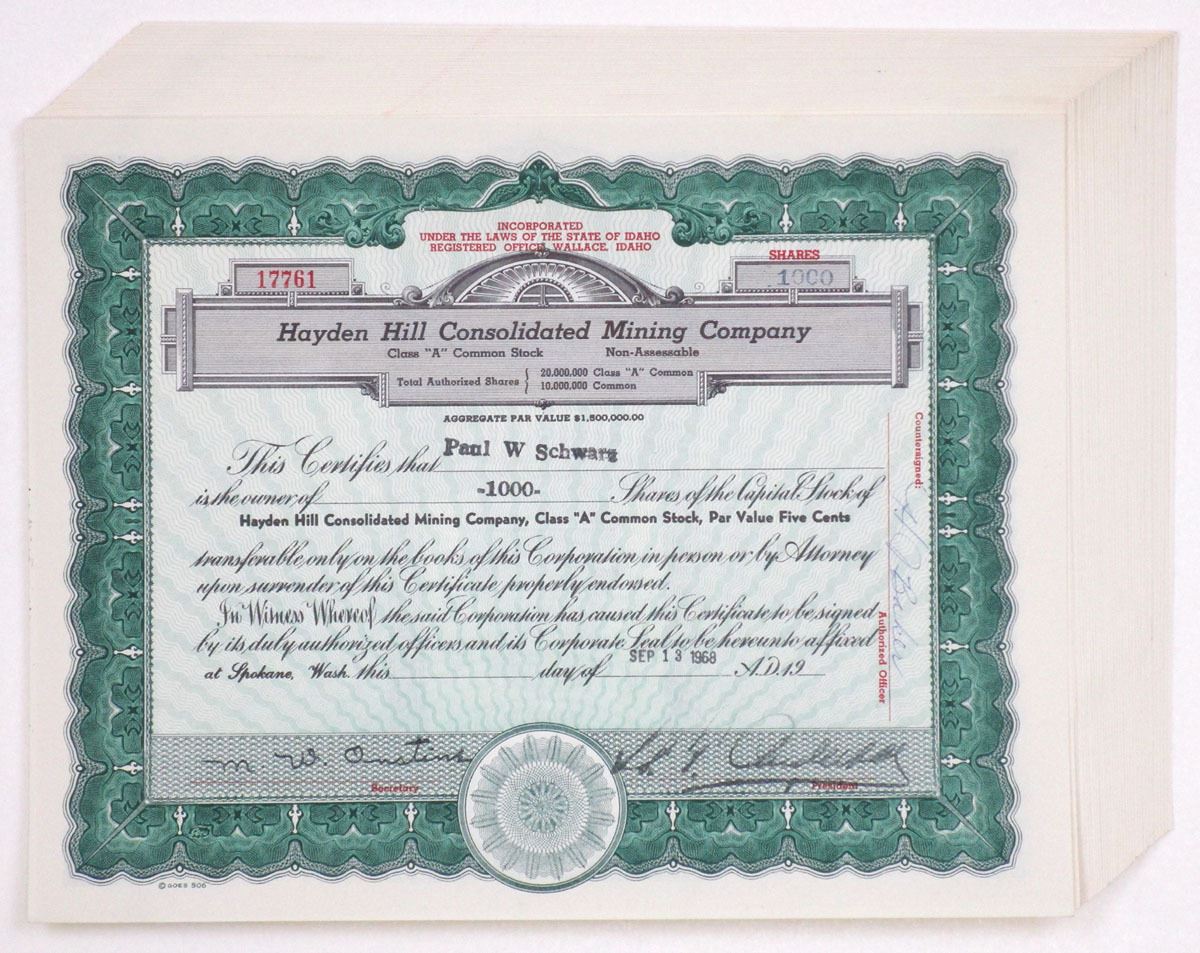 INCORPORATED
UNDER THE LAWS OF THE STATE OF IDAHO
REGISTERED OFFICE, WALLACE, IDAHO
17761
SHARES
1000
Hayden Hill Consolidated Mining Company
Class "A" Common Stock Non-Assessable
Total Authorized Shares { 20.000.000 Class "A" Common
10.000.000 Common
AGGREGATE PAR VALUE $1,500,000.00
This Certifies that Paul W Schwarz
is the owner of -1000- Shares of the Capital Stock of
Hayden Hill Consolidated Mining Company, Class "A" Common Stock, Par Value Five Cents
transferable only on the books of this Corporation in person or by Attorney
upon surrender of this Certificate properly endorsed.
In Witness Whereof the said Corporation has caused this Certificate to be signed
by its duly authorized officers and its Corporate Seal to be hereunto affixed
at Spokane, Wash. this day of SEP 13 1968 A.D. 19
Countersigned:
Authorized Officer
M W.
Secretary
President
© GOES 506